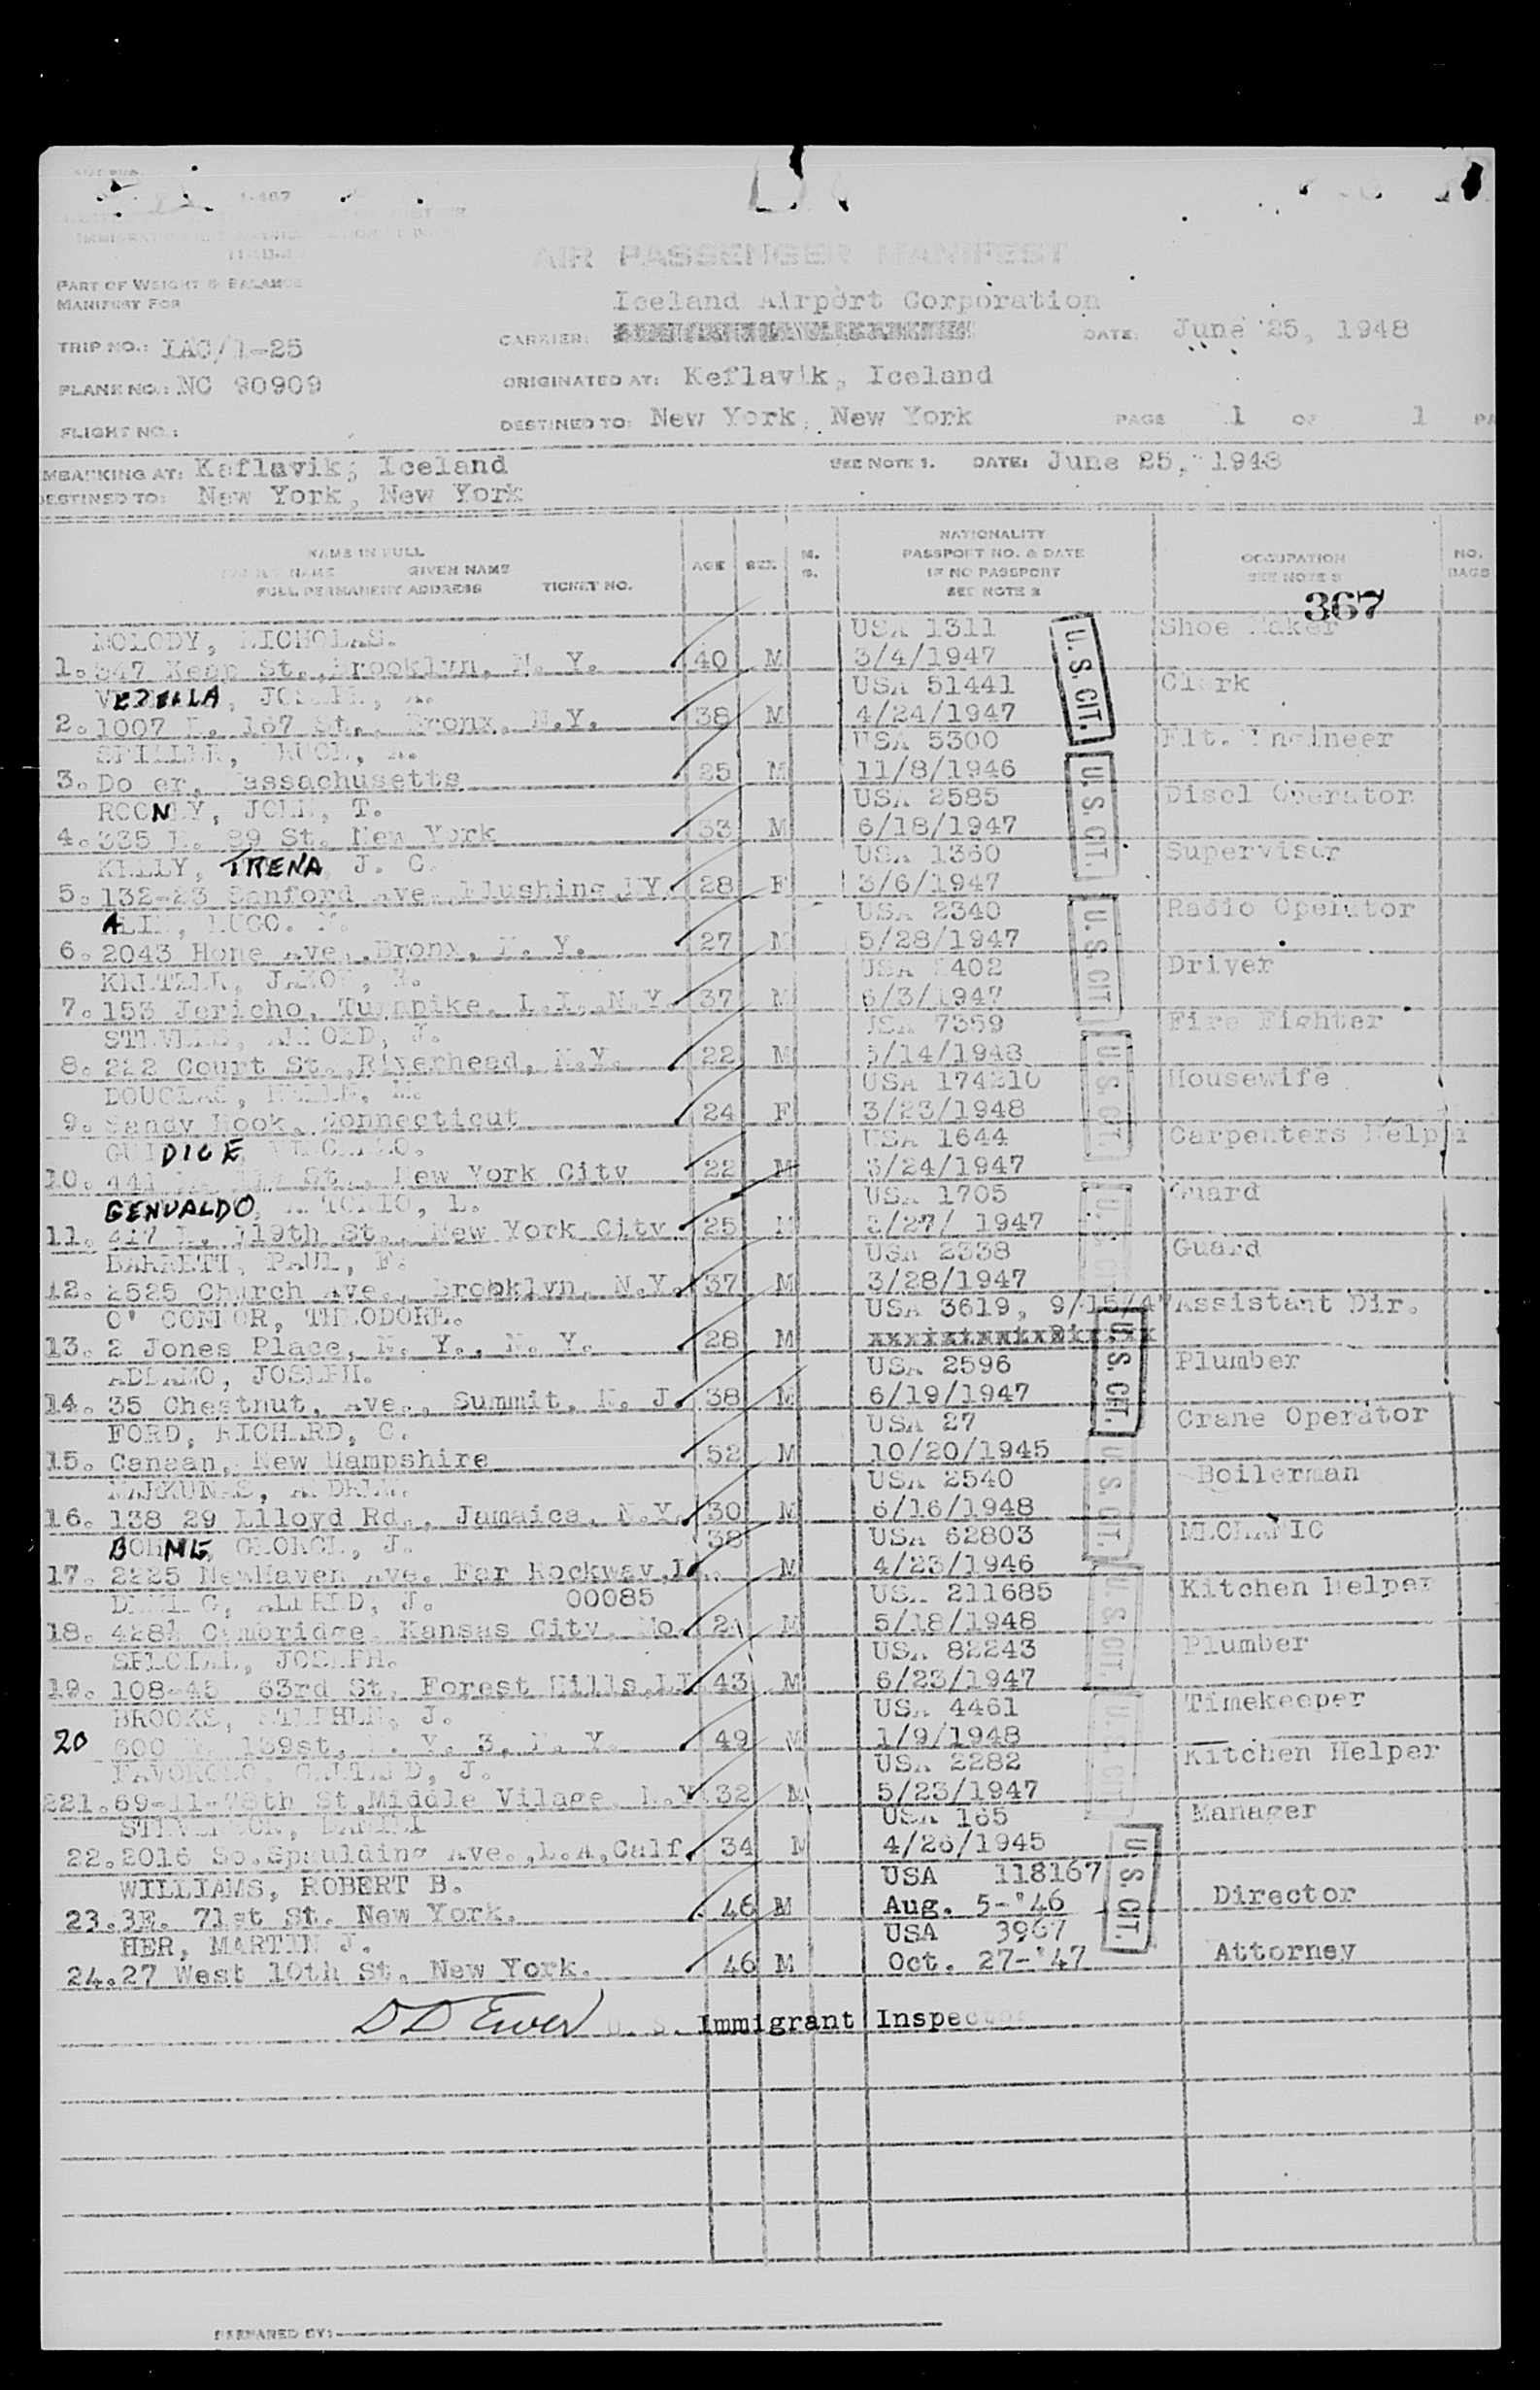 1-467
AIR PASSENGER MANIFEST
PART OF WEIGHT & BALANCE
MANIFEST FOR
Iceland Airport Corporation
TRIP NO.: IAC/1-25 CARRIER: DATE: June 25, 1948
PLANE NO.: NC 90909 ORIGINATED AT: Keflavik, Iceland
FLIGHT NO.: DESTINED TO: New York, New York PAGE 1 OF 1 PA
MBARKING AT: Keflavik, Iceland SEE NOTE 1. DATE: June 25, 1948
DESTINED TO: New York, New York
NAME IN FULL
FAMILY NAME GIVEN NAME
FULL PERMANENT ADDRESS TICKET NO.
AGE SEX M. S.
NATIONALITY
PASSPORT NO. & DATE
IF NO PASSPORT
SEE NOTE 2
OCCUPATION
SEE NOTE 3
NO. BAGS
367
MOLODY, NICHOLAS. USA 1311 Shoe Maker
1. 347 Keap St., Brooklyn, N. Y. 40 M 3/4/1947
JOSEPH, USA 51441 Clerk
2. 1007 E. 167 St., Bronx, N.Y. 38 M 4/24/1947
USA 5300 Flt. Engineer
3. Do er, assachusetts 25 M 11/8/1946
ROONEY, JOHN, T. USA 2585 Disel Operator
4. 335 E. 89 St. New York 33 M 6/18/1947
KELLY, TRENA J. C. USA 1360 Supervisor
5. 132-23 Sanford Ave. Flushing, NY. 28 F 3/6/1947
HUGO. USA 2340 Radio Operator
6. 2043 Hone Ave., Bronx, N. Y. 27 M 5/28/1947
USA 402 Driver
7. 153 Jericho, Turnpike, L.I., N.Y. 37 M 6/3/1947
J. USA 7359 Fire Fighter
8. 222 Court St., Riverhead, N.Y. 22 M 5/14/1948
DOUGLAS, USA 174210 Housewife
9. Sandy Hook, Connecticut 24 F 3/23/1948
GUIDICE USA 1644 Carpenters Help
10. 441 St., New York City 22 M 3/24/1947
GENUALDO, L. USA 1705 Guard
11. 417 E. 119th St., New York City 25 M /27/ 1947
BARRETT, PAUL, F. USA 2338 Guard
12. 2525 Church Ave., Brooklyn, N.Y. 37 M 3/28/1947
O' CONNOR, THEODORE. USA 3619, 9/15/47 Assistant Dir.
13. 2 Jones Place, N. Y., N. Y. 28 M
ADDAMO, JOSEPH. USA 2596 Plumber
14. 35 Chestnut, Ave., Summit, N. J. 38 M 6/19/1947
FORD, RICHARD, C. USA 27 Crane Operator
15. Canaan, New Hampshire 52 M 10/20/1945
MARKUNAS, USA 2540 Boilerman
16. 138 29 Llloyd Rd., Jamaica, N.Y. 30 M 6/16/1948
BOHME, GEORGE, J. 38 USA 62803 MECHANIC
17. 2225 NewHaven Ave. Far Rockway, L M 4/23/1946
ALFRED, J. 00085 USA 211685 Kitchen Helper
18. 428½ Cambridge, Kansas City, Mo. 21 M 5/18/1948
SPECIAL, JOSEPH. USA 82243 Plumber
19. 108-45 63rd St. Forest Hills, LI 43 M 6/23/1947
BROOKS, STEPHEN, J. USA 4461 Timekeeper
20 600 W. 139st, N. Y. 3, N. Y. 49 M 1/9/1948
J. USA 2282 Kitchen Helper
221. 69-11-78th St, Middle Vilage, N.Y 32 M 5/23/1947
DANIEL USA 165 Manager
22. 2016 So. Spaulding Ave., L.A, Calf. 34 M 4/26/1945
WILLIAMS, ROBERT B. USA 118167 Director
23. 3E. 71st St. New York. 46 M Aug. 5-'46
HER, MARTIN J. USA 3967 Attorney
24. 27 West 10th St. New York. 46 M Oct. 27-'47
U. S. CIT.
U. S. CIT.
U. S. CIT
U. S. CIT
U. S. CIT
U. S. CIT.
U. S. CIT.
U. S. CIT.
U. S. CIT
U. S. CIT.
U. S. Immigrant Inspector
PREPARED BY: